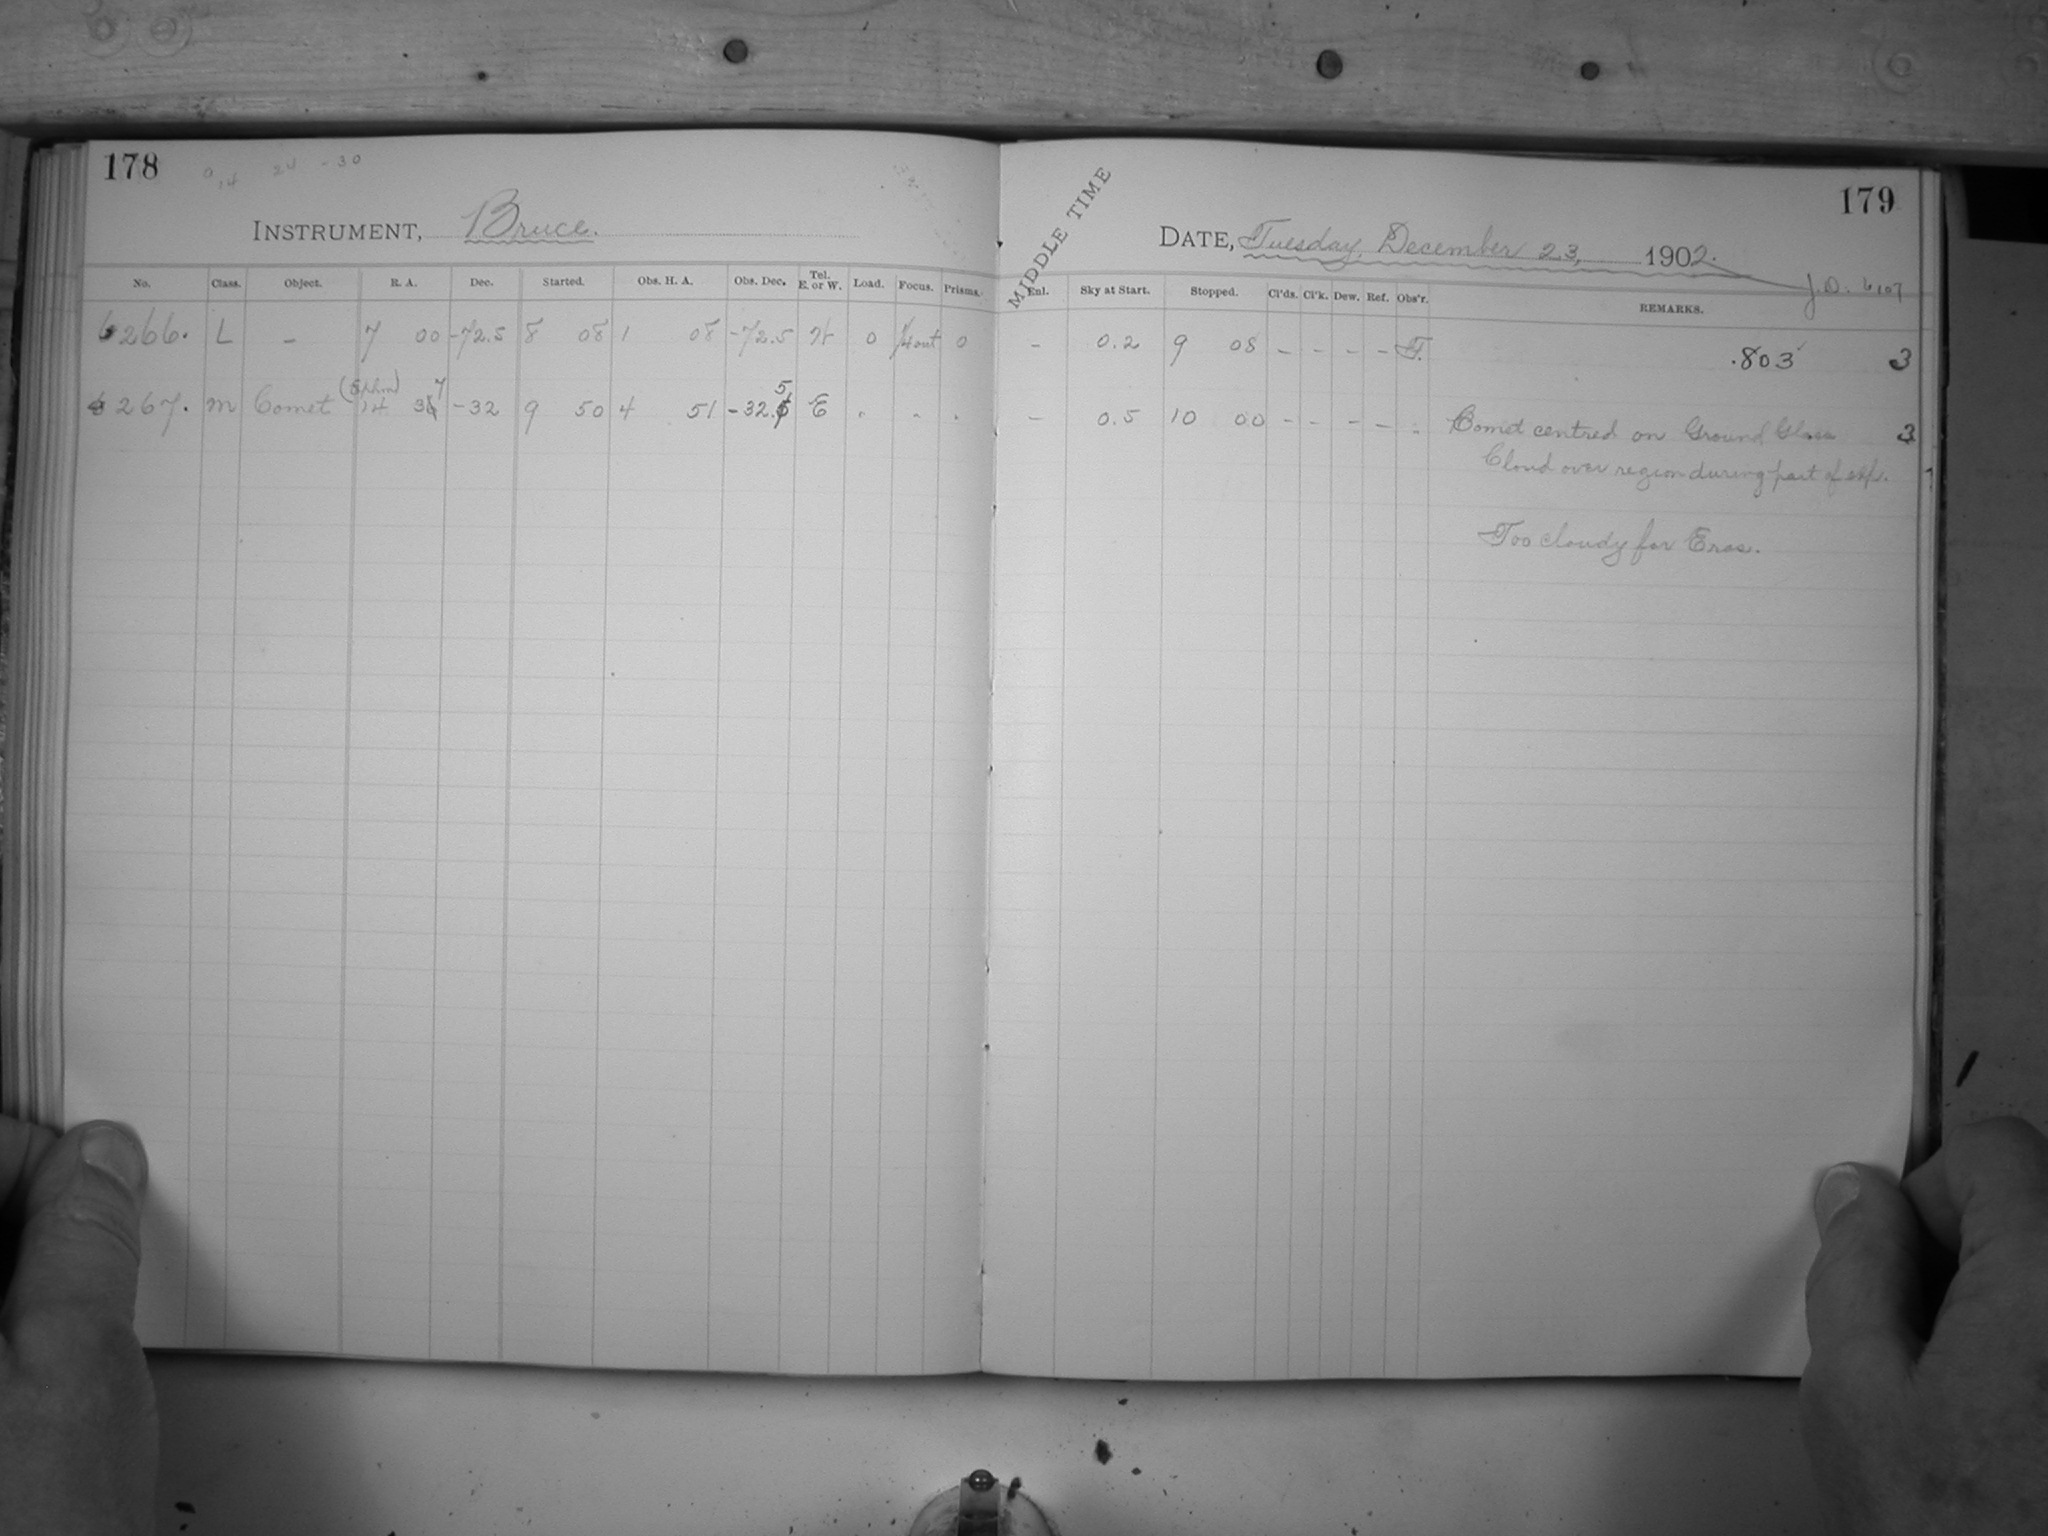 178
179
MIDDLE TIME
INSTRUMENT, Bruce.
DATE, Tuesday, December 23, 1902.
J.D. 6107
No. Class. Object. R. A. Dec. Started. Obs. H. A. Obs. Dec. Tel. E. or W. Load. Focus. Prisms. Enl. Sky at Start. Stopped. Cl'ds. Cl'k. Dew. Ref. Obs'r. REMARKS.
6266. L – 7 00 -72.5 8 08 1 08 -72.5 W 0 out 0 – 0.2 9 08 – – – – F. .803 3
6267. M Comet 14 37 -32 9 50 4 51 -32.5 E – 0.5 10 00 – – – – Comet centred on Ground Glass 3
Cloud over region during part of exp.
Too cloudy for Eros.